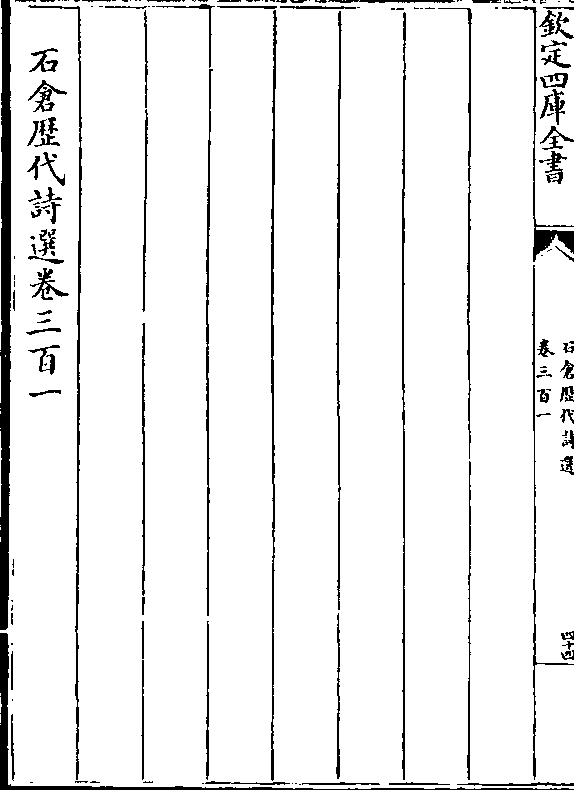 欽定四庫全書
石倉歷代詩選
卷三百一
四十四
石倉歷代詩選卷三百一